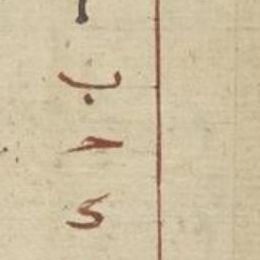 ا
ب
ح
د